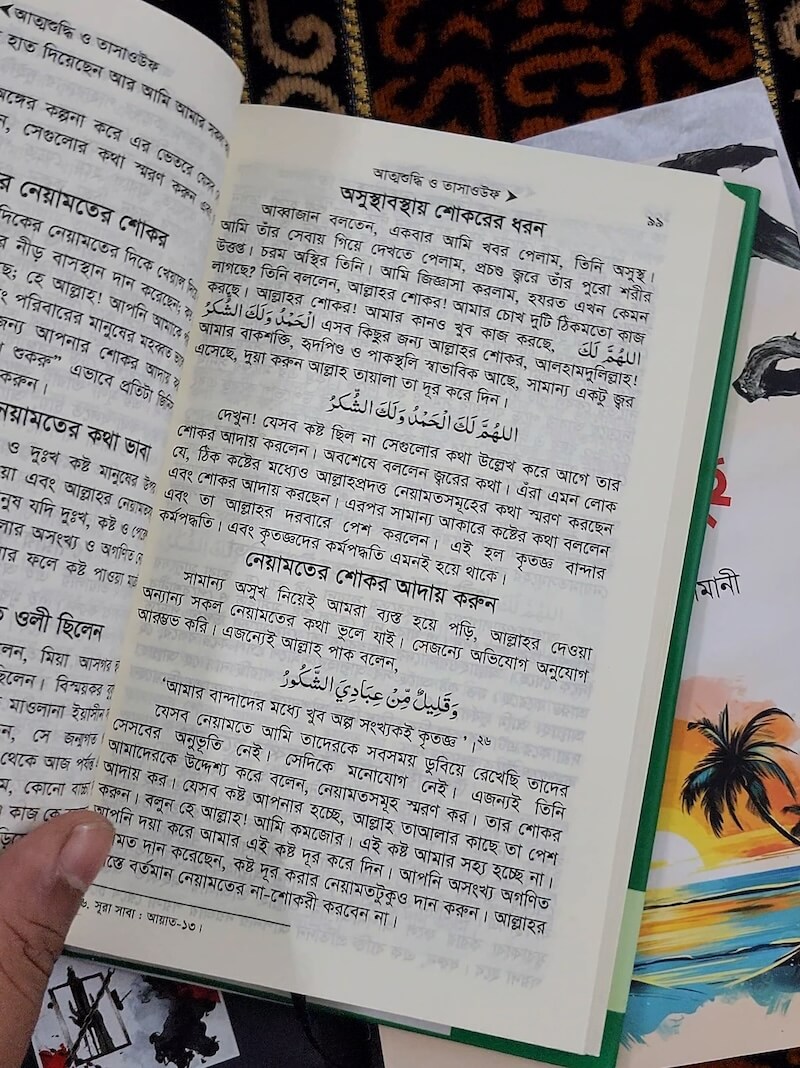 আত্মশুদ্ধি ও তাসাওউফ
হাত দিয়েছেন আর আমি আমার
কল্পনা করে এর ভেতরে যেসব
সেগুলোর কথা স্মরণ করুন
নেয়ামতের শোকর
দিকের নেয়ামতের দিকে খেয়াল
নীড় বাসস্থান দান করেছেন;
হে আল্লাহ! আপনি আমাকে
পরিবারের মানুষের মহব্বত
আপনার শোকর আদায়
শুকরু” এভাবে প্রতিটা
করুন।
নেয়ামতের কথা ভাবা
ও দুঃখ কষ্ট মানুষের
এবং আল্লাহর
যদি দুঃখ, কষ্ট ও
অসংখ্য ও অগণিত
ফলে কষ্ট পাওয়া
ওলী ছিলেন
মিয়া আসগর
ছিলেন। বিস্ময়কর
মাওলানা ইয়াসীন
সে জন্মগত
থেকে আজ পর্যন্ত
কোনো
কাজ
আত্মশুদ্ধি ও তাসাওউফ
৯৯
অসুস্থাবস্থায় শোকরের ধরন
আব্বাজান বলতেন, একবার আমি খবর পেলাম, তিনি অসুস্থ।
আমি তাঁর সেবায় গিয়ে দেখতে পেলাম, প্রচণ্ড জ্বরে তাঁর পুরো শরীর
উত্তপ্ত। চরম অস্থির তিনি। আমি জিজ্ঞাসা করলাম, হযরত এখন কেমন
লাগছে? তিনি বললেন, আল্লাহর শোকর! আমার চোখ দুটি ঠিকমতো কাজ
করছে। আল্লাহর শোকর! আমার কানও খুব কাজ করছে, اللهُمَّ لَكَ
الْحَمْدُ وَلَكَ الشُّكْرُ এসব কিছুর জন্য আল্লাহর শোকর, আলহামদুলিল্লাহ!
আমার বাকশক্তি, হৃদপিণ্ড ও পাকস্থলি স্বাভাবিক আছে, সামান্য একটু জ্বর
এসেছে, দুয়া করুন আল্লাহ তায়ালা তা দূর করে দিন।
اللهُمَّ لَكَ الْحَمْدُ وَلَكَ الشُّكْرُ
দেখুন! যেসব কষ্ট ছিল না সেগুলোর কথা উল্লেখ করে আগে তার
শোকর আদায় করলেন। অবশেষে বললেন জ্বরের কথা। এঁরা এমন লোক
যে, ঠিক কষ্টের মধ্যেও আল্লাহপ্রদত্ত নেয়ামতসমূহের কথা স্মরণ করছেন
এবং শোকর আদায় করছেন। এরপর সামান্য আকারে কষ্টের কথা বললেন
এবং তা আল্লাহর দরবারে পেশ করলেন। এই হল কৃতজ্ঞ বান্দার
কর্মপদ্ধতি। এবং কৃতজ্ঞদের কর্মপদ্ধতি এমনই হয়ে থাকে।
নেয়ামতের শোকর আদায় করুন
সামান্য অসুখ নিয়েই আমরা ব্যস্ত হয়ে পড়ি, আল্লাহর দেওয়া
অন্যান্য সকল নেয়ামতের কথা ভুলে যাই। সেজন্যে অভিযোগ অনুযোগ
আরম্ভ করি। এজন্যেই আল্লাহ পাক বলেন,
وَقَلِيلٌ مِّنْ عِبَادِيَ الشَّكُورُ
‘আমার বান্দাদের মধ্যে খুব অল্প সংখ্যকই কৃতজ্ঞ’।২৬
যেসব নেয়ামতে আমি তাদেরকে সবসময় ডুবিয়ে রেখেছি তাদের
সেসবের অনুভূতি নেই। সেদিকে মনোযোগ নেই। এজন্যই তিনি
আমাদেরকে উদ্দেশ্য করে বলেন, নেয়ামতসমূহ স্মরণ কর। তার শোকর
আদায় কর। যেসব কষ্ট আপনার হচ্ছে, আল্লাহ তাআলার কাছে তা পেশ
করুন। বলুন হে আল্লাহ! আমি কমজোর। এই কষ্ট আমার সহ্য হচ্ছে না।
আপনি দয়া করে আমার এই কষ্ট দূর করে দিন। আপনি অসংখ্য অগণিত
দান করেছেন, কষ্ট দূর করার নেয়ামতটুকুও দান করুন। আল্লাহর
বর্তমান নেয়ামতের না-শোকরী করবেন না।
সূরা সাবা : আয়াত-১৩।